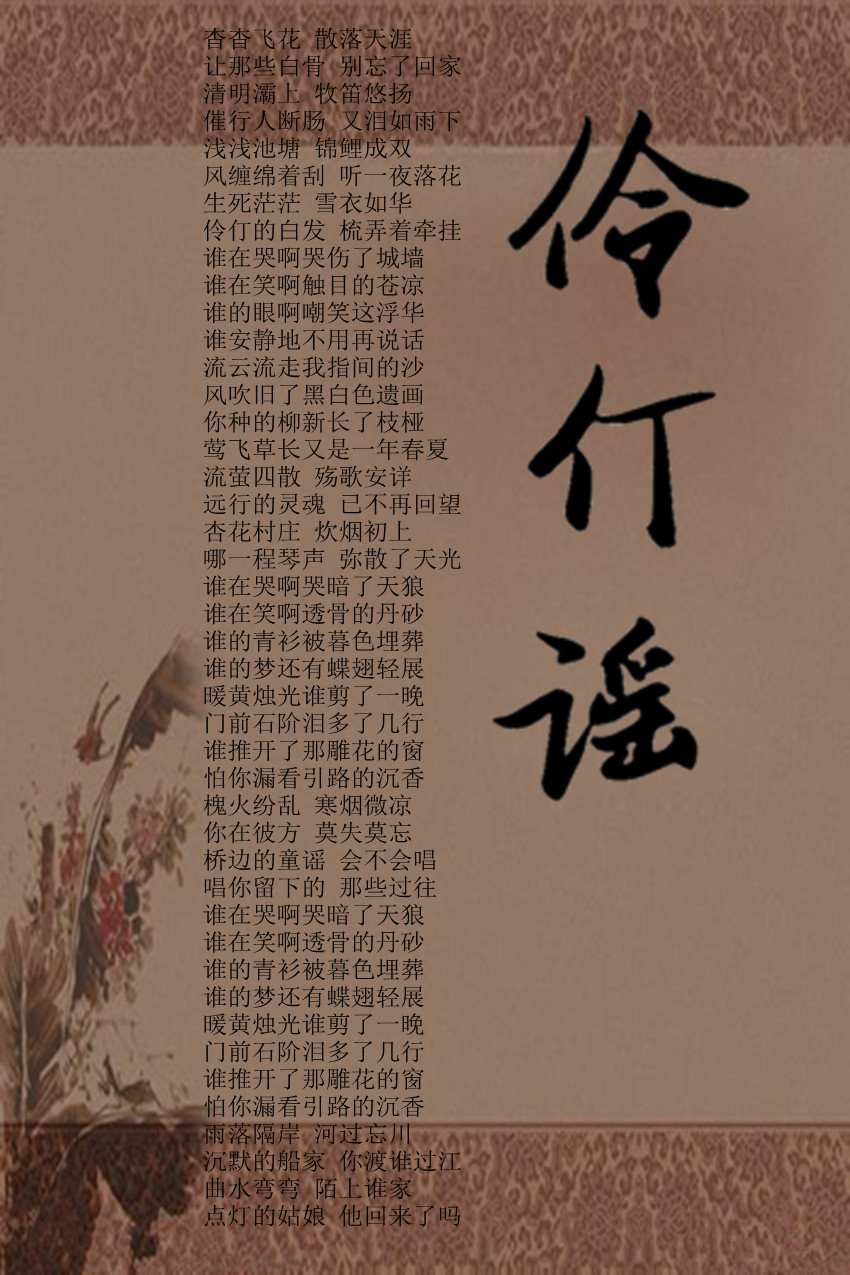 伶仃谣
杳杳飞花 散落天涯
让那些白骨 别忘了回家
清明灞上 牧笛悠扬
催行人断肠 又泪如雨下
浅浅池塘 锦鲤成双
风缠绵着刮 听一夜落花
生死茫茫 雪衣如华
伶仃的白发 梳弄着牵挂
谁在哭啊哭伤了城墙
谁在笑啊触目的苍凉
谁的眼啊嘲笑这浮华
谁安静地不用再说话
流云流走我指间的沙
风吹旧了黑白色遗画
你种的柳新长了枝桠
莺飞草长又是一年春夏
流萤四散 殇歌安详
远行的灵魂 已不再回望
杏花村庄 炊烟初上
哪一程琴声 弥散了天光
谁在哭啊哭暗了天狼
谁在笑啊透骨的丹砂
谁的青衫被暮色埋葬
谁的梦还有蝶翅轻展
暖黄烛光谁剪了一晚
门前石阶泪多了几行
谁推开了那雕花的窗
怕你漏看引路的沉香
槐火纷乱 寒烟微凉
你在彼方 莫失莫忘
桥边的童谣 会不会唱
唱你留下的 那些过往
谁在哭啊哭暗了天狼
谁在笑啊透骨的丹砂
谁的青衫被暮色埋葬
谁的梦还有蝶翅轻展
暖黄烛光谁剪了一晚
门前石阶泪多了几行
谁推开了那雕花的窗
怕你漏看引路的沉香
雨落隔岸 河过忘川
沉默的船家 你渡谁过江
曲水弯弯 陌上谁家
点灯的姑娘 他回来了吗